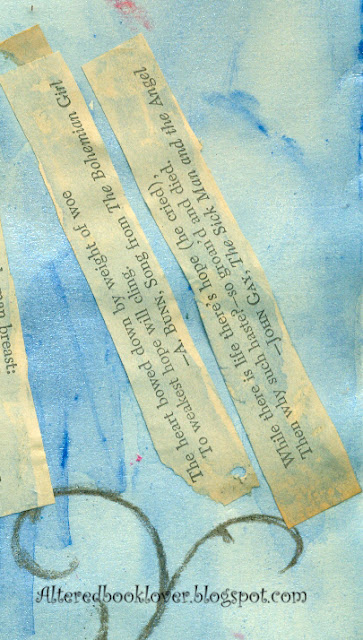 man breast:
The heart bowed down by weight of woe
To weakest hope will cling.
—A. BUNN, Song from The Bohemian Girl
While there is life there's hope (he cried),
Then why such haste?—so groan'd and died.
—JOHN GAY, The Sick Man and the Angel
Alteredbooklover.blogspot.com